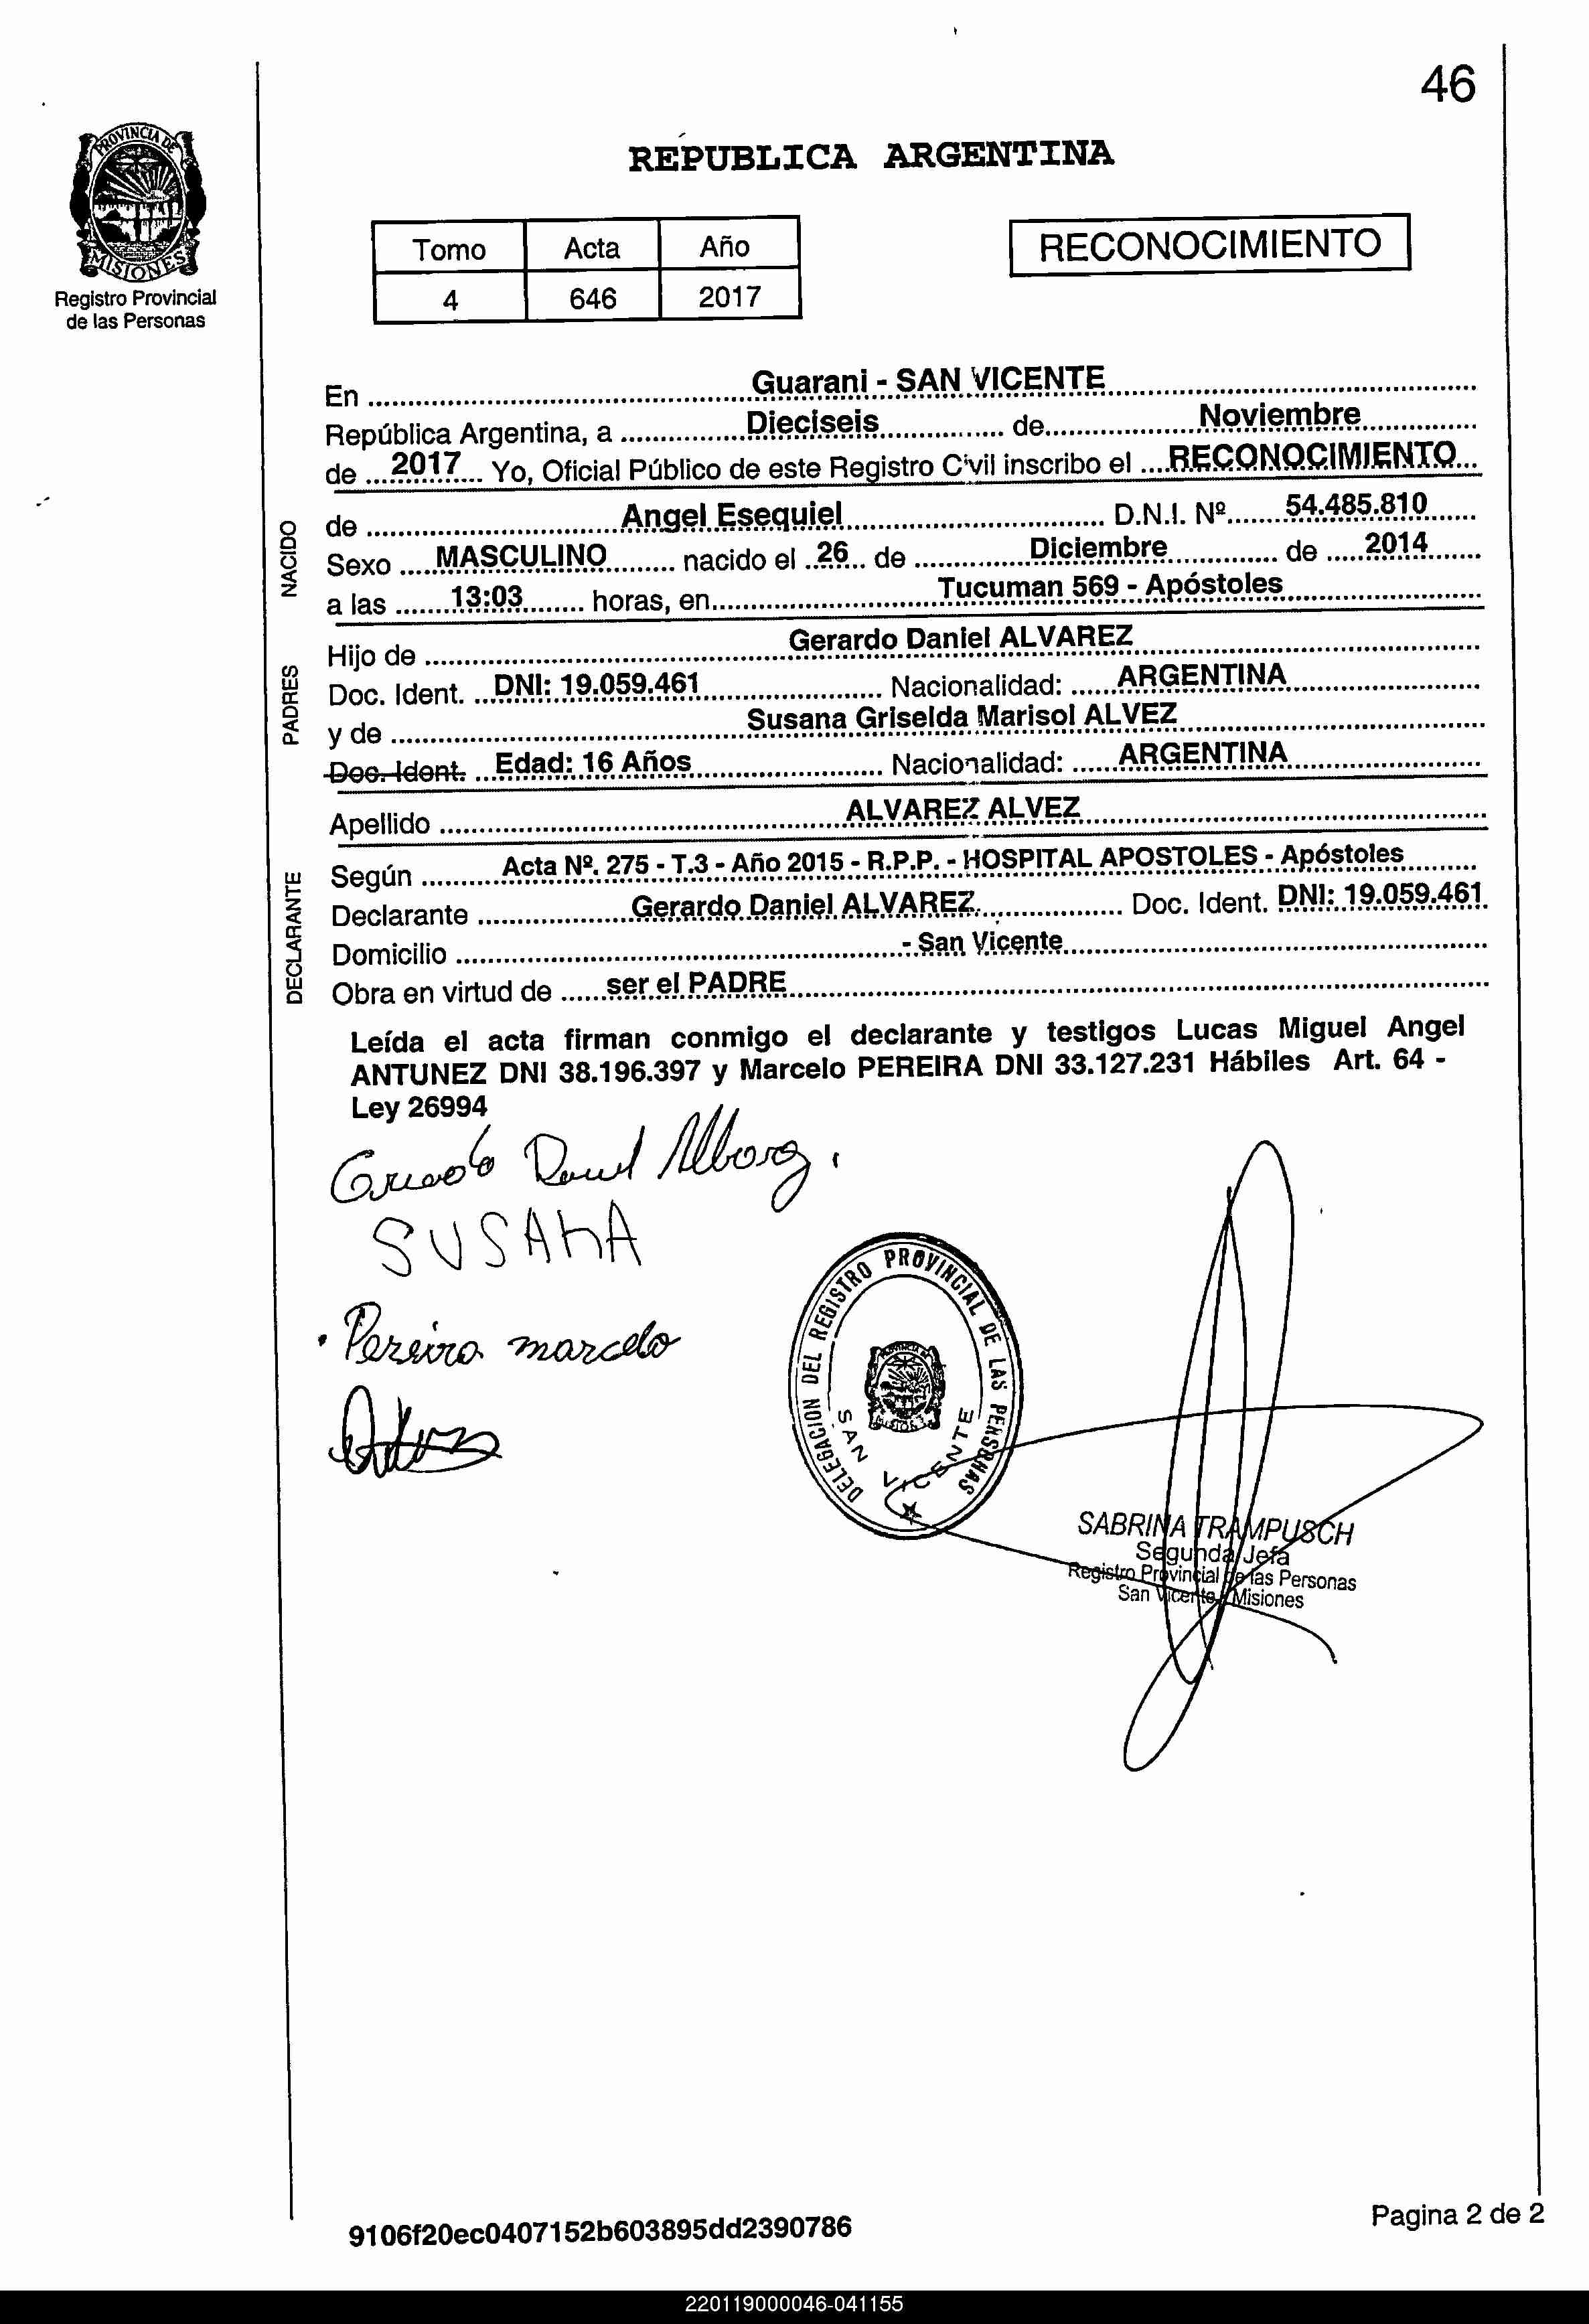 46
PROVINCIA DE
MISIONES
Registro Provincial
de las Personas
REPUBLICA ARGENTINA
Tomo Acta Año
4 646 2017
RECONOCIMIENTO
En Guarani - SAN VICENTE
República Argentina, a Dieciseis de Noviembre
de 2017 Yo, Oficial Público de este Registro Civil inscribo el RECONOCIMIENTO
NACIDO
de Angel Esequiel D.N.I. Nº 54.485.810
Sexo MASCULINO nacido el 26 de Diciembre de 2014
a las 13:03 horas, en Tucuman 569 - Apóstoles
PADRES
Hijo de Gerardo Daniel ALVAREZ
Doc. Ident. DNI: 19.059.461 Nacionalidad: ARGENTINA
y de Susana Griselda Marisol ALVEZ
Doc. Ident. Edad: 16 Años Nacionalidad: ARGENTINA
Apellido ALVAREZ ALVEZ
DECLARANTE
Según Acta Nº. 275 - T.3 - Año 2015 - R.P.P. - HOSPITAL APOSTOLES - Apóstoles
Declarante Gerardo Daniel ALVAREZ Doc. Ident. DNI: 19.059.461
Domicilio - San Vicente
Obra en virtud de ser el PADRE
Leída el acta firman conmigo el declarante y testigos Lucas Miguel Angel
ANTUNEZ DNI 38.196.397 y Marcelo PEREIRA DNI 33.127.231 Hábiles Art. 64 -
Ley 26994
SUSANA
Pereira marcelo
DELEGACION DEL REGISTRO PROVINCIAL DE LAS PERSONAS
SAN VICENTE
SABRINA TRAMPUSCH
Segunda Jefa
Registro Provincial de las Personas
San Vicente - Misiones
9106f20ec0407152b603895dd2390786
Pagina 2 de 2
220119000046-041155